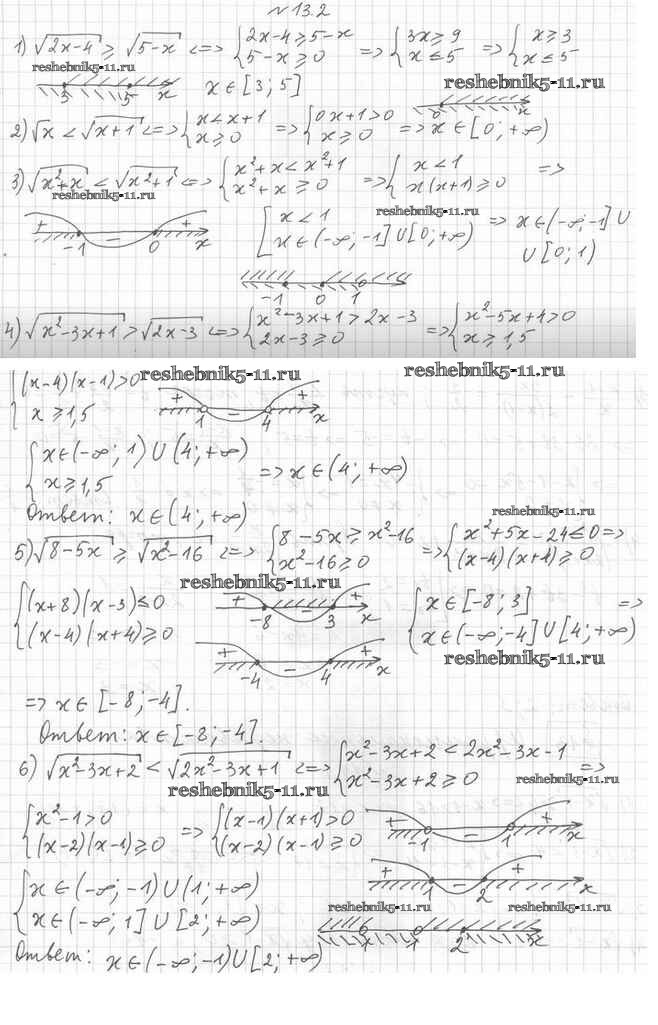 №13.2
1) √(2x-4) ≥ √(5-x) <=> { 2x-4 ≥ 5-x ; 5-x ≥ 0 => { 3x ≥ 9 ; x ≤ 5 => { x ≥ 3 ; x ≤ 5
reshebnik5-11.ru
3 5 x x ∈ [3; 5]
reshebnik5-11.ru
0 x
2) √x < √(x+1) <=> { x < x+1 ; x ≥ 0 => { 0x+1>0 ; x ≥ 0 => x ∈ [0; +∞)
3) √(x²+x) < √(x²+1) <=> { x²+x < x²+1 ; x²+x ≥ 0 => { x < 1 ; x(x+1) ≥ 0 =>
reshebnik5-11.ru
+ -1 − 0 + x
[ x < 1 ; x ∈ (-∞; -1] U [0; +∞) => x ∈ (-∞; -1] U
reshebnik5-11.ru
U [0; 1)
-1 0 1
4) √(x²-3x+1) > √(2x-3) <=> { x²-3x+1 > 2x-3 ; 2x-3 ≥ 0 => { x²-5x+4>0 ; x ≥ 1,5
reshebnik5-11.ru
reshebnik5-11.ru
{ (x-4)(x-1)>0 ; x ≥ 1,5
+ 1 − 4 + x
{ x ∈ (-∞; 1) U (4; +∞) ; x ≥ 1,5 => x ∈ (4; +∞)
Ответ: x ∈ (4; +∞)
reshebnik5-11.ru
5) √(8-5x) ≥ √(x²-16) <=> { 8-5x ≥ x²-16 ; x²-16 ≥ 0 => { x²+5x-24 ≤ 0 ; (x-4)(x+4) ≥ 0 =>
reshebnik5-11.ru
{ (x+8)(x-3) ≤ 0 ; (x-4)(x+4) ≥ 0
+ -8 − 3 + x
+ -4 − 4 + x
{ x ∈ [-8; 3] ; x ∈ (-∞; -4] U [4; +∞) =>
reshebnik5-11.ru
=> x ∈ [-8; -4].
Ответ: x ∈ [-8; -4].
6) √(x²-3x+2) < √(2x²-3x+1) <=> { x²-3x+2 < 2x²-3x-1 ; x²-3x+2 ≥ 0 =>
reshebnik5-11.ru
reshebnik5-11.ru
{ x²-1>0 ; (x-2)(x-1) ≥ 0 => { (x-1)(x+1)>0 ; (x-2)(x-1) ≥ 0
+ -1 − 1 + x
+ 1 − 2 + x
{ x ∈ (-∞; -1) U (1; +∞) ; x ∈ (-∞; 1] U [2; +∞)
reshebnik5-11.ru
reshebnik5-11.ru
2 x
Ответ: x ∈ (-∞; -1) U [2; +∞)